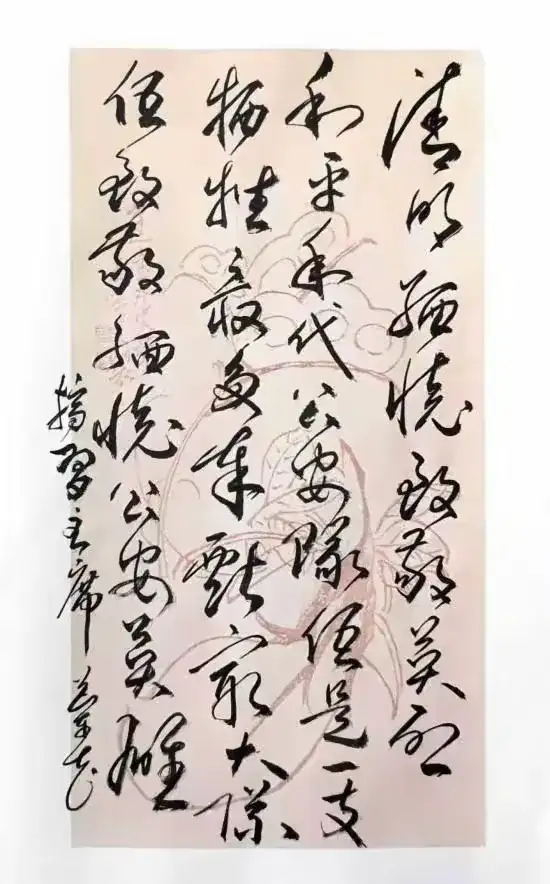 清明缅怀致敬英烈
和平年代公安队伍是一支
牺牲最多奉献最大队
伍致敬缅怀公安英雄
摘习主席